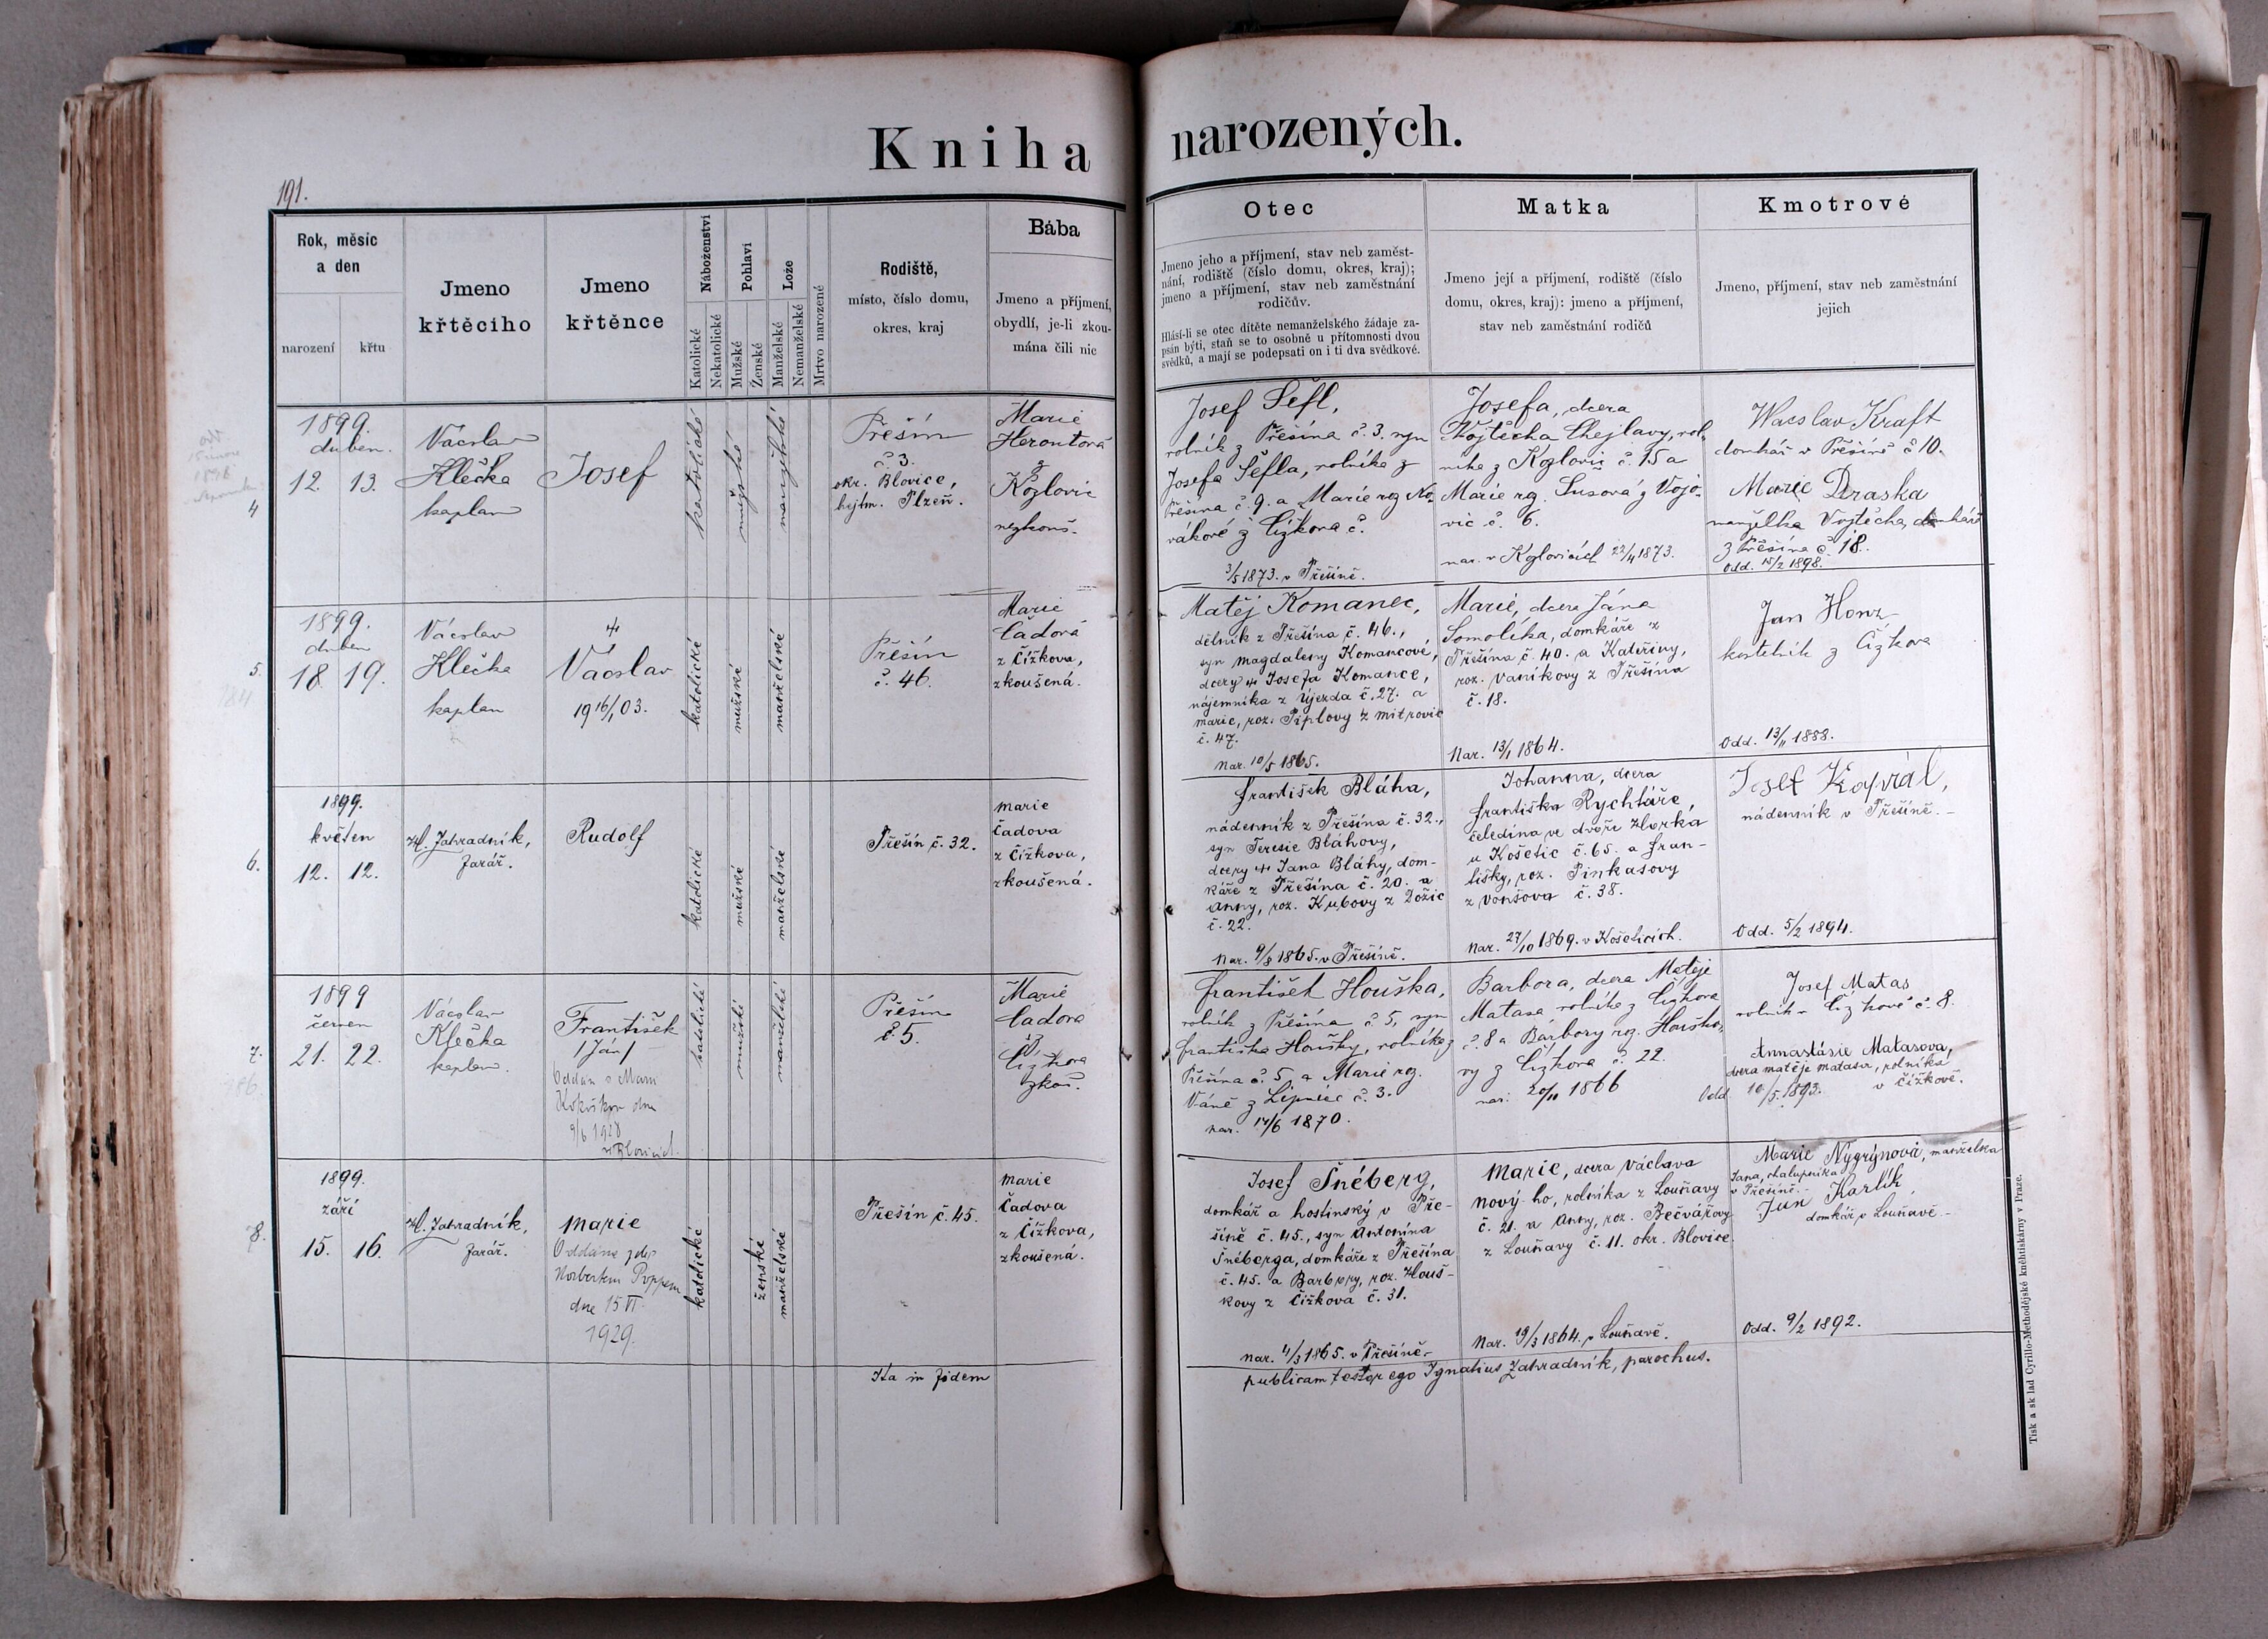 Kniha narozených.
191.
Rok, měsíc
a den
narození
křtu
Jmeno
křtěcího
Jmeno
křtěnce
Náboženství
Katolické
Nekatolické
Pohlaví
Mužské
Ženské
Lože
Manželské
Nemanželské
Mrtvo narozené
Rodiště,
místo, číslo domu,
okres, kraj
Bába
Jmeno a příjmení,
obydlí, je-li zkou-
mána čili nic
Otec
Jmeno jeho a příjmení, stav neb zaměst-
nání, rodiště (číslo domu, okres, kraj);
jmeno a příjmení, stav neb zaměstnání
rodičův.
Hlásí-li se otec dítěte nemanželského žádaje za-
psán býti, staň se to osobně u přítomnosti dvou
svědků, a mají se podepsati on i ti dva svědkové.
Matka
Jmeno její a příjmení, rodiště (číslo
domu, okres, kraj): jmeno a příjmení,
stav neb zaměstnání rodičů
Kmotrové
Jmeno, příjmení, stav neb zaměstnání
jejich
4
1899.
duben.
12. 13.
Václav
Klečka
kaplan
Josef
katolické
mužské
manželské
Přešín
č. 3.
okr. Blovice,
hejtm. Plzeň.
Marie
Heroutová
z
Kozlovic
nezkouš.
Josef Šefl,
rolník z Přešína č. 3. syn
Josefa Šefla, rolníka z
Přešína č. 9. a Marie roz. No-
vákové z Čížkova č.
3/5 1873. v Přešíně.
Josefa, dcera
Vojtěcha Chejlavy, rol-
níka z Kozlovic č. 15 a
Marie roz. Susová z Vojo-
vic č. 6.
nar. v Kozlovicích 22/4 1873.
Wacslav Kraft
domkář v Přešíně č 10.
Marie Draska
manželka Vojtěcha, domkáře
z Přešína č. 18.
Odd. 15/2 1898.
5.
1899.
duben
18. 19.
Václav
Klečka
kaplan
Václav
19 16/1 03.
katolické
mužské
manželské
Přešín
č. 46.
Marie
Čadová
z Čížkova,
zkoušená.
Matěj Komanec,
dělník z Přešína č. 46.,
syn Magdaleny Komancové,
dcery Josefa Komance,
nájemníka z Újezda č. 27. a
Marie, roz. Piplovy z Mitrovic
č. 47.
Nar. 10/5 1865.
Marie, dcera Jána
Somolíka, domkáře z
Přešína č. 40. a Kateřiny,
roz. Vaníkovy z Přešína
č. 18.
Nar. 13/1 1864.
Jan Honz
kostelník z Čížkova
Odd. 13/11 1888.
6.
1899.
květen
12. 12.
Zahradník,
farář.
Rudolf
katolické
mužské
manželské
Přešín č. 32.
Marie
Čadova
z Čížkova,
zkoušená.
František Bláha,
nádenník z Přešína č. 32.,
syn Teresie Bláhovy,
dcery Jana Bláhy, dom-
káře z Přešína č. 20. a
Anny, roz. Kubovy z Dožic
č. 22.
Nar. 9/8 1865. v Přešíně.
Johanna, dcera
Františka Rychtáře,
čeledína ve dvoře
u Košetic č. 65. a Fran-
tišky, roz. Pinkasovy
z Vonšova č. 38.
Nar. 27/10 1869. v Košeticích.
Josef Kaprál,
nádenník v Přešíně.-
Odd. 5/2 1894.
7.
1899
červen
21. 22.
Václav
Klečka
kaplan.
František
/Ján/
Oddán s Marii
dne
9/6 1928
v Blovicích.
katolické
mužské
manželské
Přešín
č. 5.
Marie
Čadová
z
Čížkova
zkouš.
František Houška,
rolník z Přešína č. 5, syn
Františka Houšky, rolníka z
Přešína č. 5 a Marie roz.
Váně z Lipnice č. 3.
nar. 14/6 1870.
Barbora, dcera Matěje
Matasa rolníka z Čížkova
č. 8 a Barbory roz. Houško-
vy z Čížkova č. 22.
nar. 20/11 1866
Josef Matas
rolník v Čížkově č. 8.
Annastásie Matasova,
dcera Matěje Matasa, rolníka
v Čížkově.
Odd 10/5. 1893.
8.
1899.
září
15. 16.
Zahradník,
farář.
Marie
Oddána zde s
Norbertem Poppem
dne 15 VI.
1929.
katolické
ženské
manželské
Přešín č. 45.
Marie
Čadova
z Čížkova,
zkoušená.
Josef Šnéberg,
domkář a hostinský v Pře-
šíně č. 45., syn Antonína
Šnéberga, domkáře z Přešína
č. 45. a Barbory, roz. Houš-
kovy z Čížkova č. 31.
nar. 4/3 1865. v Přešíně.-
Marie, dcera Václava
Nový-ho, rolníka z Louňavy
č. 21. a Anny, roz. Bečvářovy
z Louňavy č. 11. okr. Blovice.
Nar. 19/3 1864. v Louňavě.
Marie Nygrýnová, manželka
Jana, chalupníka
v Přešíně.-
Jan Karlík,
domkář v Louňavě.-
Odd. 9/2 1892.
Ita in fidem publicam testor ego Ignatius Zahradník, parochus.
Tisk a sklad Cyrillo-Methodějské knihtiskárny v Praze.